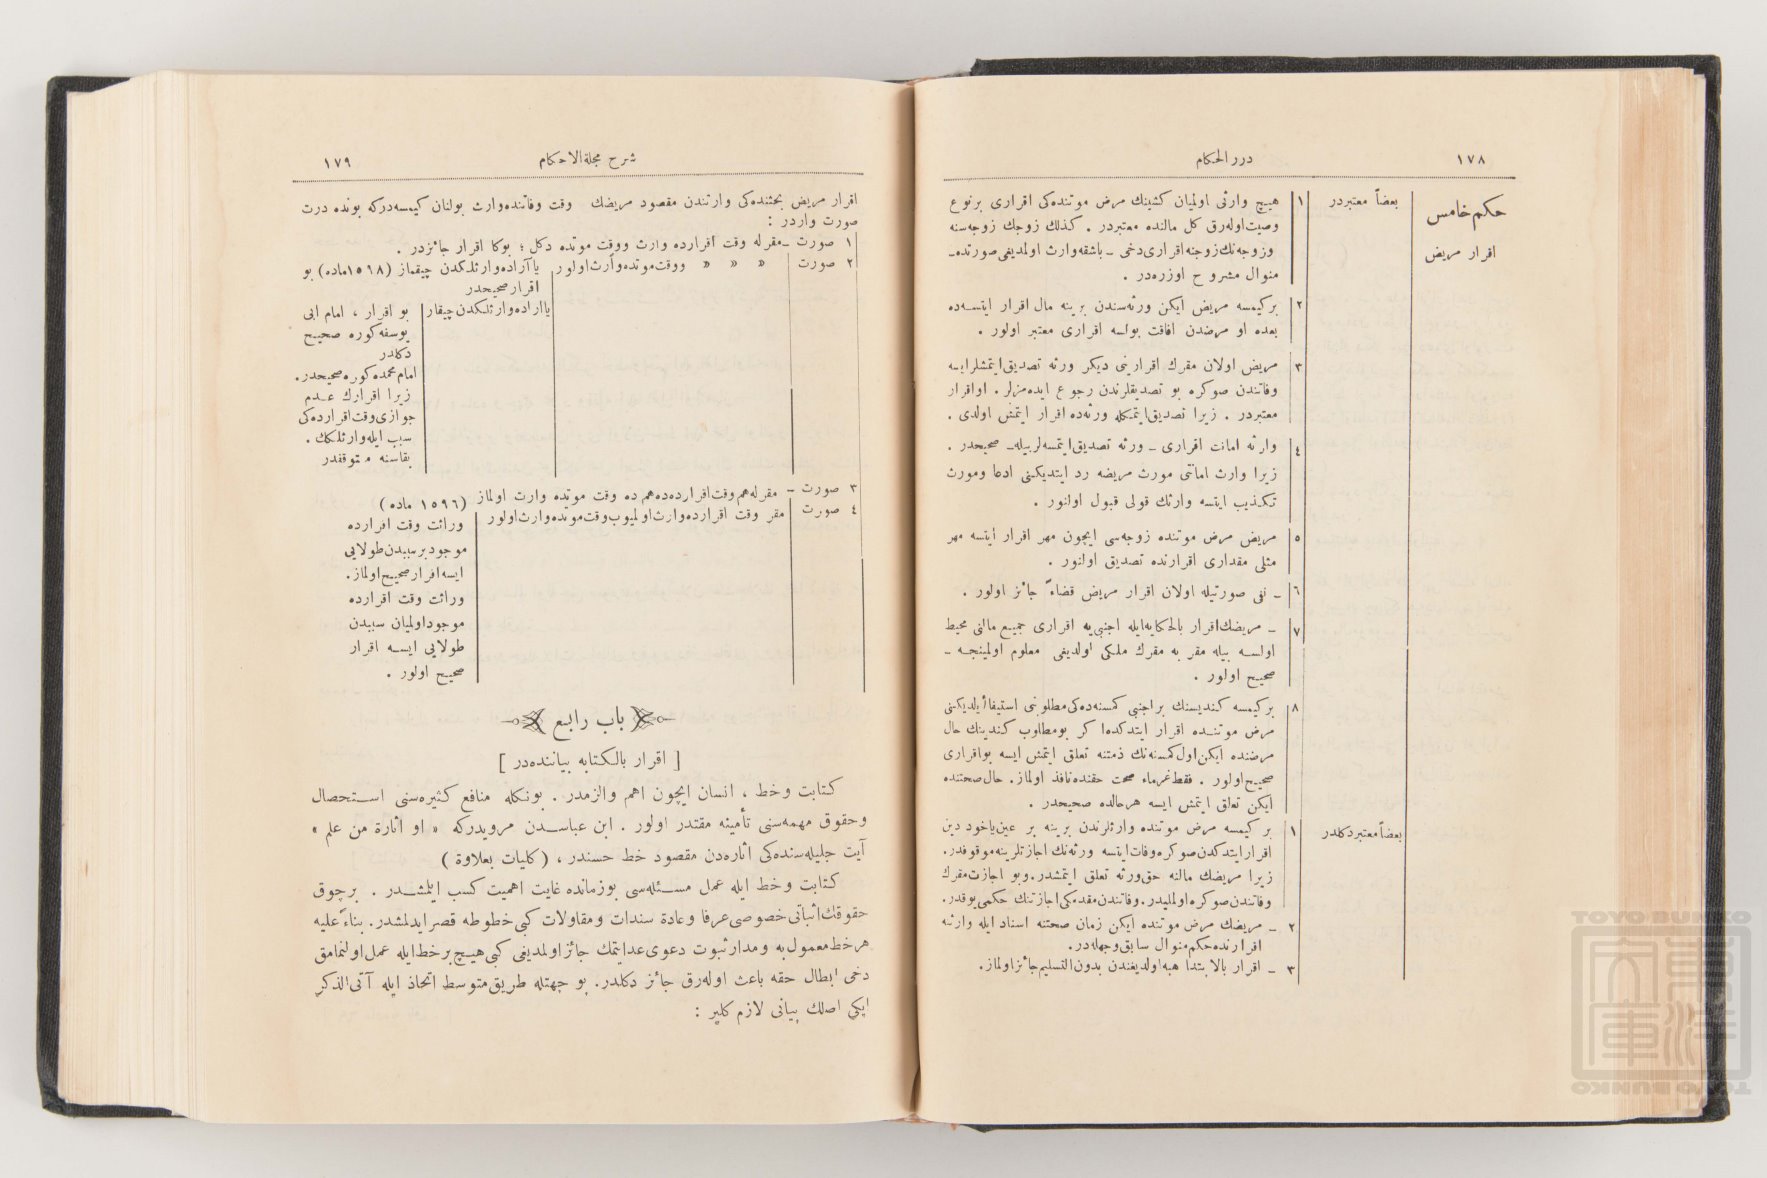 ١٧٨
درر الحكام
حكم خامس
اقرار مريض
بعضاً معتبردر
١ هيچ وارثى اولميان كشينك مرض موتنده‌كى اقرارى برنوع
وصيت اوله‌رق كل مالنده معتبردر . كذلك زوجك زوجه‌سنه
وزوجه‌نك زوجنه اقرارى دخى ـ باشقه وارث اولمديغى صورتده ـ
منوال مشروح اوزره‌در .
٢ بركيمسه مريض ايكن ورثه‌سندن برينه مال اقرار ايتسه‌ده
بعده او مرضدن افاقت بولسه اقرارى معتبر اولور .
٣ مريض اولان مقرك اقرارينى ديكر ورثه تصديق ايتمشلرايسه
وفاتندن صوكره بو تصديقلرندن رجوع ايده‌مزلر . اواقرار
معتبردر . زيرا تصديق ايتمكله ورثه‌ده اقرار ايتمش اولدى .
٤ وارثه امانت اقرارى ـ ورثه تصديق ايتمسه‌لربيله ـ صحيحدر .
زيرا وارث امانتى مورث مريضه رد ايتديكنى ادعا ومورث
تكذيب ايتسه وارثك قولى قبول اولنور .
٥ مريض مرض موتنده زوجه‌سى ايچون مهر اقرار ايتسه مهر
مثلى مقدارى اقرارنده تصديق اولنور .
٦ ـ نفى صورتيله اولان اقرار مريض قضاءً جائز اولور .
٧ ـ مريضك اقرار بالحكايه‌ايله اجنبى‌يه اقرارى جميع مالنى محيط
اولسه بيله مقر به مقرك ملكى اولديغى معلوم اولمينجه ـ
صحيح اولور .
٨ بركيمسه كنديسنك براجنبى كمسنه‌ده‌كى مطلوبنى استيفا ايلديكنى
مرض موتنده اقرار ايتدكده اكر بومطلوب كندينك حال
مرضنده ايكن اول كمسنه‌نك ذمتنه تعلق ايتمش ايسه بواقرارى
صحيح اولور . فقط غرماء صحت حقنده نافذ اولماز. حال صحتنده
ايكن تعلق ايتمش ايسه هرحالده صحيحدر .
بعضاً معتبر دكلدر
١ بر كيمسه مرض موتنده وارثلرندن برينه بر عين ياخود دين
اقرار ايتدكدن صوكره وفات ايتسه ورثه‌نك اجازتلرينه موقوفدر.
زيرا مريضك مالنه حق ورثه تعلق ايتمشدر. وبو اجازت مقرك
وفاتندن صوكره اولمليدر. وفاتندن مقدمكى اجازتنك حكمى يوقدر.
٢ ـ مريضك مرض موتنده ايكن زمان صحتنه اسناد ايله وارثه
اقرارنده حكم منوال سابق وجهله‌در.
٣ ـ اقرار بالابتدا هبه اولديغندن بدون التسليم جائز اولماز.
شرح مجلة الاحكام
١٧٩
اقرار مريض بحثنده‌كى وارثندن مقصود مريضك وقت وفاتنده وارث بولنان كيمسه‌دركه بونده درت
صورت واردر :
١ صورت ـ مقرله وقت اقرارده وارث ووقت موتده دكل ؛ بوكا اقرار جائزدر .
٢ صورت « « « ووقت موتده وارث اولور
يا آزاده وارثلكدن چيقماز (١٥٩٨ ماده) بو
اقرار صحيحدر
يا اراده وارثلكدن چيقار
بو اقرار ، امام ابى
يوسفه كوره صحيح
دكلدر
امام محمده كوره صحيحدر.
زيرا اقرارك عدم
جوازى وقت اقرارده‌كى
سبب ايله وارثلكك .
بقاسنه متوقفدر
٣ صورت ـ مقرله هم وقت اقرارده‌ده هم ده وقت موتده وارث اولماز (١٥٩٦ ماده)
٤ صورت مقر وقت اقرارده وارث اولميوب وقت موتده وارث اولور
وراثت وقت اقرارده
موجود برسببدن طولايى
ايسه اقرار صحيح اولماز.
وراثت وقت اقرارده
موجود اولميان سببدن
طولايى ايسه اقرار
صحيح اولور .
باب رابع
[ اقرار بالكتابه بياننده‌در ]
كتابت وخط ، انسان ايچون اهم والزمدر . بونكله منافع كثيره‌سنى استحصال
وحقوق مهمه‌سنى تأمينه مقتدر اولور . ابن عباسدن مرويدركه « او اثارة من علم »
آيت جليله‌سنده‌كى اثاره‌دن مقصود خط حسندر ، ( كليات بعلاوة )
كتابت وخط ايله عمل مسئله‌سى بوزمانده غايت اهميت كسب ايلمشدر . برچوق
حقوقك اثباتى خصوصى عرفا وعادة سندات ومقاولات كبى خطوطه قصر ايدلمشدر. بناءً عليه
هر خط معمول به ومدار ثبوت دعوى عد ايتمك جائز اولمديغى كبى هيچ بر خط ايله عمل اولنمامق
دخى ابطال حقه باعث اوله‌رق جائز دكلدر. بو جهتله طريق متوسط اتخاذ ايله آتى الذكر
ايكى اصلك بيانى لازم كلير :
TOYO BUNKO
東洋文庫
TOYO BUNKO